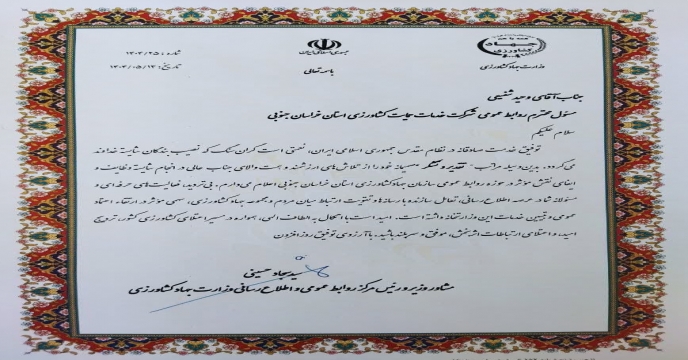 شماره: ۱۴۰۴/۲۵
تاریخ: ۱۴۰۴/۰۵/۱۳
جمهوری اسلامی ایران
باسمه تعالی
همه با هم
جهاد
کشاورزی
وزارت جهاد کشاورزی
جناب آقای وحید شفیعی
مسئول محترم روابط عمومی شرکت خدمات حمایت کشاورزی استان خراسان جنوبی
سلام علیکم
توفیق خدمت صادقانه در نظام مقدس جمهوری اسلامی ایران، نعمتی است گران سنگ که نصیب بندگان شایسته خداوند
می گردد، بدین وسیله مراتب "تقدیر و تشکر" صمیمانه خود را از تلاش های ارزشمند و همت والای جناب عالی در انجام شایسته وظایف و
ایفای نقش مؤثر در حوزه روابط عمومی سازمان جهاد کشاورزی استان خراسان جنوبی اعلام می دارم. بی تردید، فعالیت های حرفه ای و
مسئولانه شما در عرصه اطلاع رسانی، تعامل سازنده با رسانه ها و تقویت ارتباط میان مردم و مجموعه جهاد کشاورزی، سهمی مؤثر در ارتقاء اعتماد
عمومی و تبیین خدمات این وزارتخانه داشته است. امید است با اتکال به الطاف الهی، همواره در مسیر اعتلای کشاورزی کشور، ترویج
امید، و اعتلای ارتباطات اثربخش، موفق و سربلند باشید. با آرزوی توفیق روزافزون
سید سجاد حسینی
مشاور وزیر و رئیس مرکز روابط عمومی و اطلاع رسانی وزارت جهاد کشاورزی